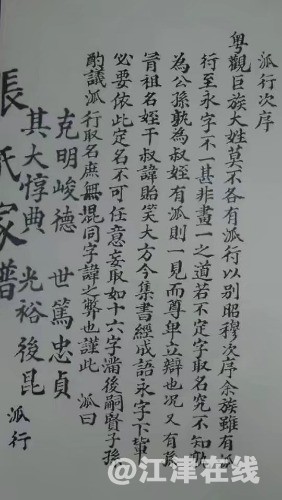 派行次序
粤觀巨族大姓莫不各有派行以别昭穆次序余族雖有派
行至永字不一甚非畫一之道若不定字取名究不知孰
為公孫孰為叔姪有派則一見而尊卑立辯也况又有
祖名姪干叔諱貽笑大方今集書經成語永字下輩
必要依此定名不可任意妄取如十六字滿後嗣賢子孫
酌議派行取名庶無混同字諱之弊也謹此 派曰
克明峻德 世篤忠貞
其大惇典 光裕後昆 派行
張氏家譜
@江津在线